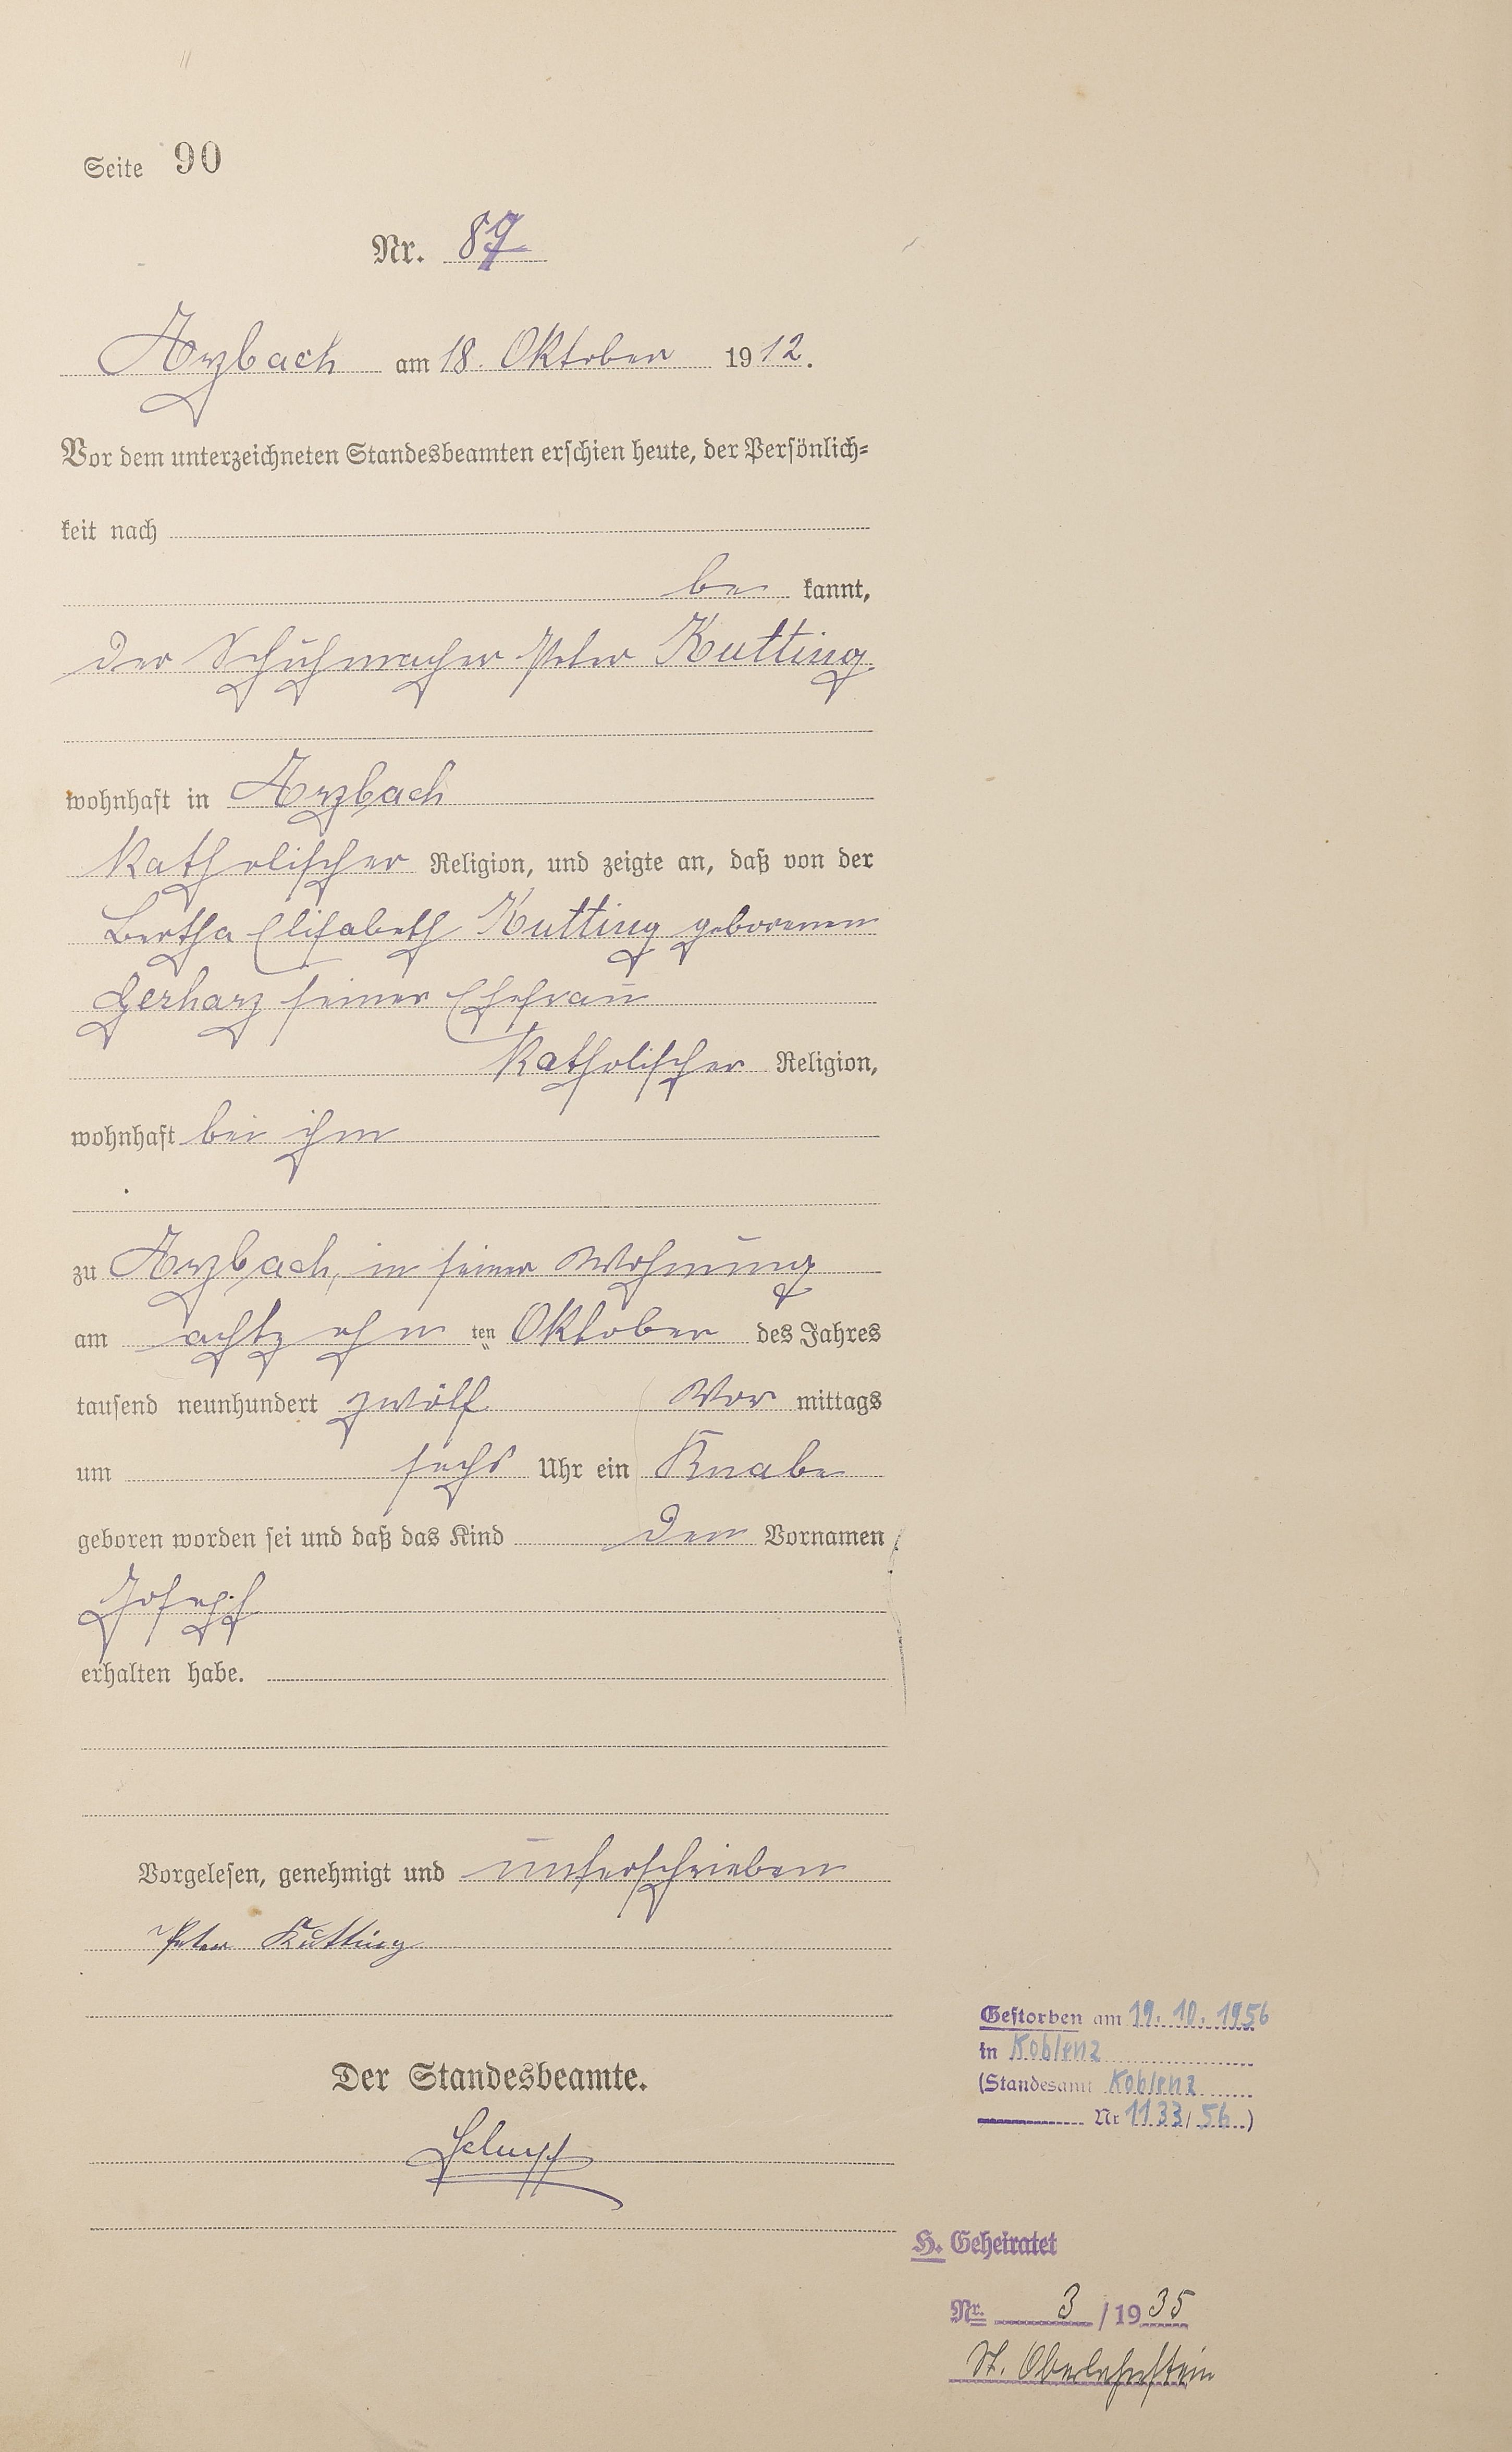 Seite 90
Nr. 87
Arzbach am 18. Oktober 1912.
Vor dem unterzeichneten Standesbeamten erschien heute, der Persönlich=
keit nach
be kannt,
der Schuhmacher Peter Kutting
wohnhaft in Arzbach
katholischer Religion, und zeigte an, daß von der
Bertha Elisabeth Kutting geborenen
Gerharz seiner Ehefrau
katholischer Religion,
wohnhaft bei ihm
zu Arzbach, in seiner Wohnung
am achtzehn ten Oktober des Jahres
tausend neunhundert zwölf Vor mittags
um sechs Uhr ein Knabe
geboren worden sei und daß das Kind den Vornamen
Joseph
erhalten habe.
Vorgelesen, genehmigt und unterschrieben
Peter Kutting
Der Standesbeamte.
Gestorben am 19. 10. 1956
in Koblenz
(Standesamt Koblenz
Nr 1133/56)
H. Geheiratet
Nr. 3/1935
St. Oberlahnstein